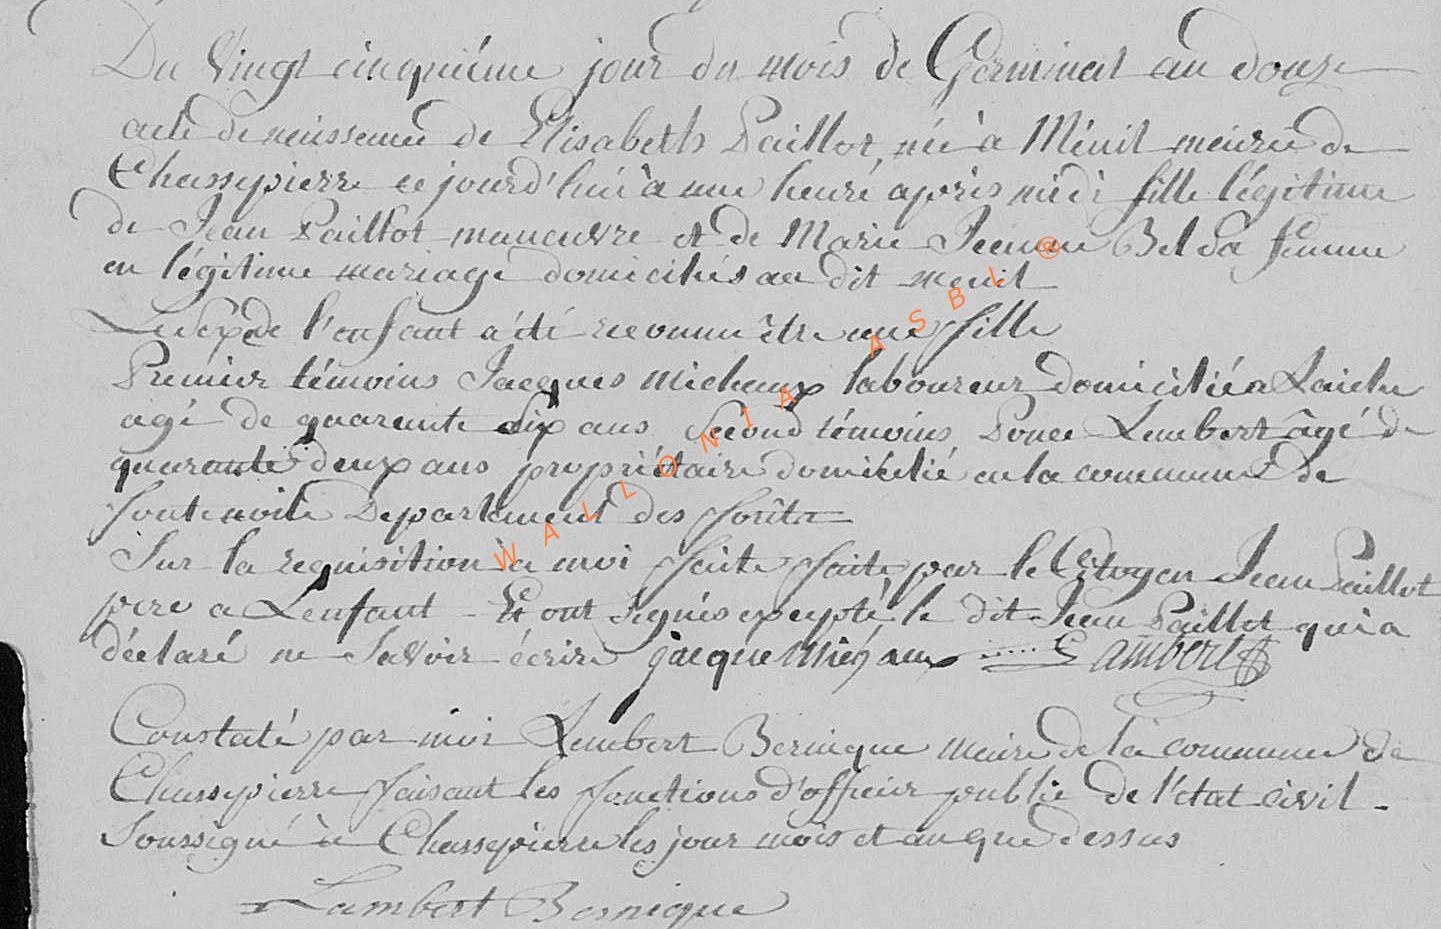 Du Vingt cinquième jour du mois de Germinal an douze
acte de naissance de Elisabeth Paillot, née à Ménil mairie de
Chassepierre ce jourd'hui à une heure après midi fille légitime
de Jean Paillot maneuvre et de Marie Jeanne Bel Sa femme
en légitime mariage domiciliés au dit menil
Le Sexe de l'enfant a été reconnu être une fille
Premier témoins Jacques Michaux laboureur domicilié a Laiche
agé de quarante Six ans Second témoins Ponce Lambert âgé de
quarante deux ans propriétaire domicilié en la commune de
fontenoile Departement des forêts
Sur la requisition à moi faite faite par le Citoyen Jean Paillot
pere a L'enfant Et ont Signés excepté le dit Jean Paillot qui a
déclaré ne Savoir écrire jacque Michaux Lambert
Constaté par moi Lambert Bernique maire de la commune de
Chassepierre faisant les fonctions d'officier public de l'état civil
Soussigné à Chassepierre les jour mois et an que dessus
Lambert Bernique
WALLONIA ASBL ®